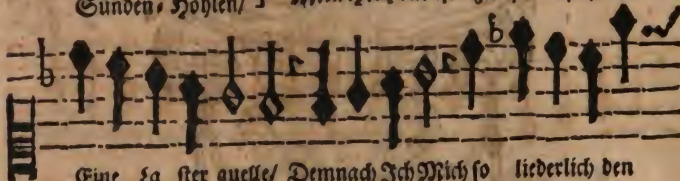 Sünden-Höhlen/
Eine La ster quelle/ Demnach Ich Mich so liederlich den